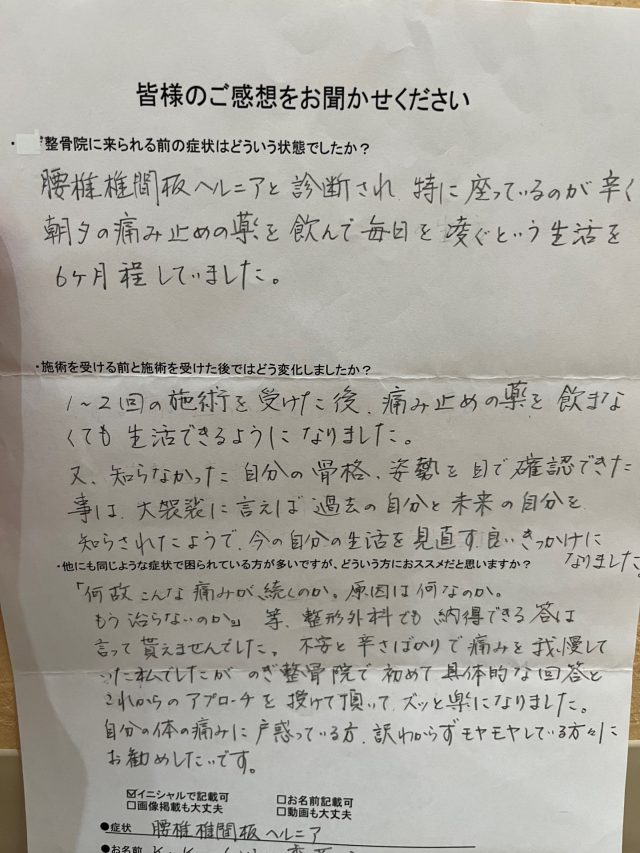 皆様のご感想をお聞かせください
整骨院に来られる前の症状はどういう状態でしたか？
腰椎椎間板ヘルニアと診断され、特に座っているのが辛く
朝夕の痛み止めの薬を飲んで毎日を凌ぐという生活を
6ヶ月程していました。
・施術を受ける前と施術を受けた後ではどう変化しましたか？
1～2回の施術を受けた後、痛み止めの薬を飲まな
くても生活できるようになりました。
又、知らなかった自分の骨格、姿勢を目で確認できた
事は、大袈裟に言えば過去の自分と未来の自分を
知らされたようで、今の自分の生活を見直す良いきっかけに
なりました。
・他にも同じような症状で困られている方が多いですが、どういう方におススメだと思いますか？
「何故こんな痛みが続くのか。原因は何なのか。
もう治らないのか」等、整形外科でも納得できる答は
言って貰えませんでした。不安と辛さばかりで痛みを我慢して
いた私でしたがのぎ整骨院で初めて具体的な回答と
これからのアプローチを授けて頂いて、ズッと楽になりました。
自分の体の痛みに戸惑っている方、訳わからずモヤモヤしている方々に
お勧めしたいです。
☑イニシャルで記載可 □お名前記載可
□画像掲載も大丈夫 □動画も大丈夫
●症状 腰椎椎間板ヘルニア
●お名前 K.K